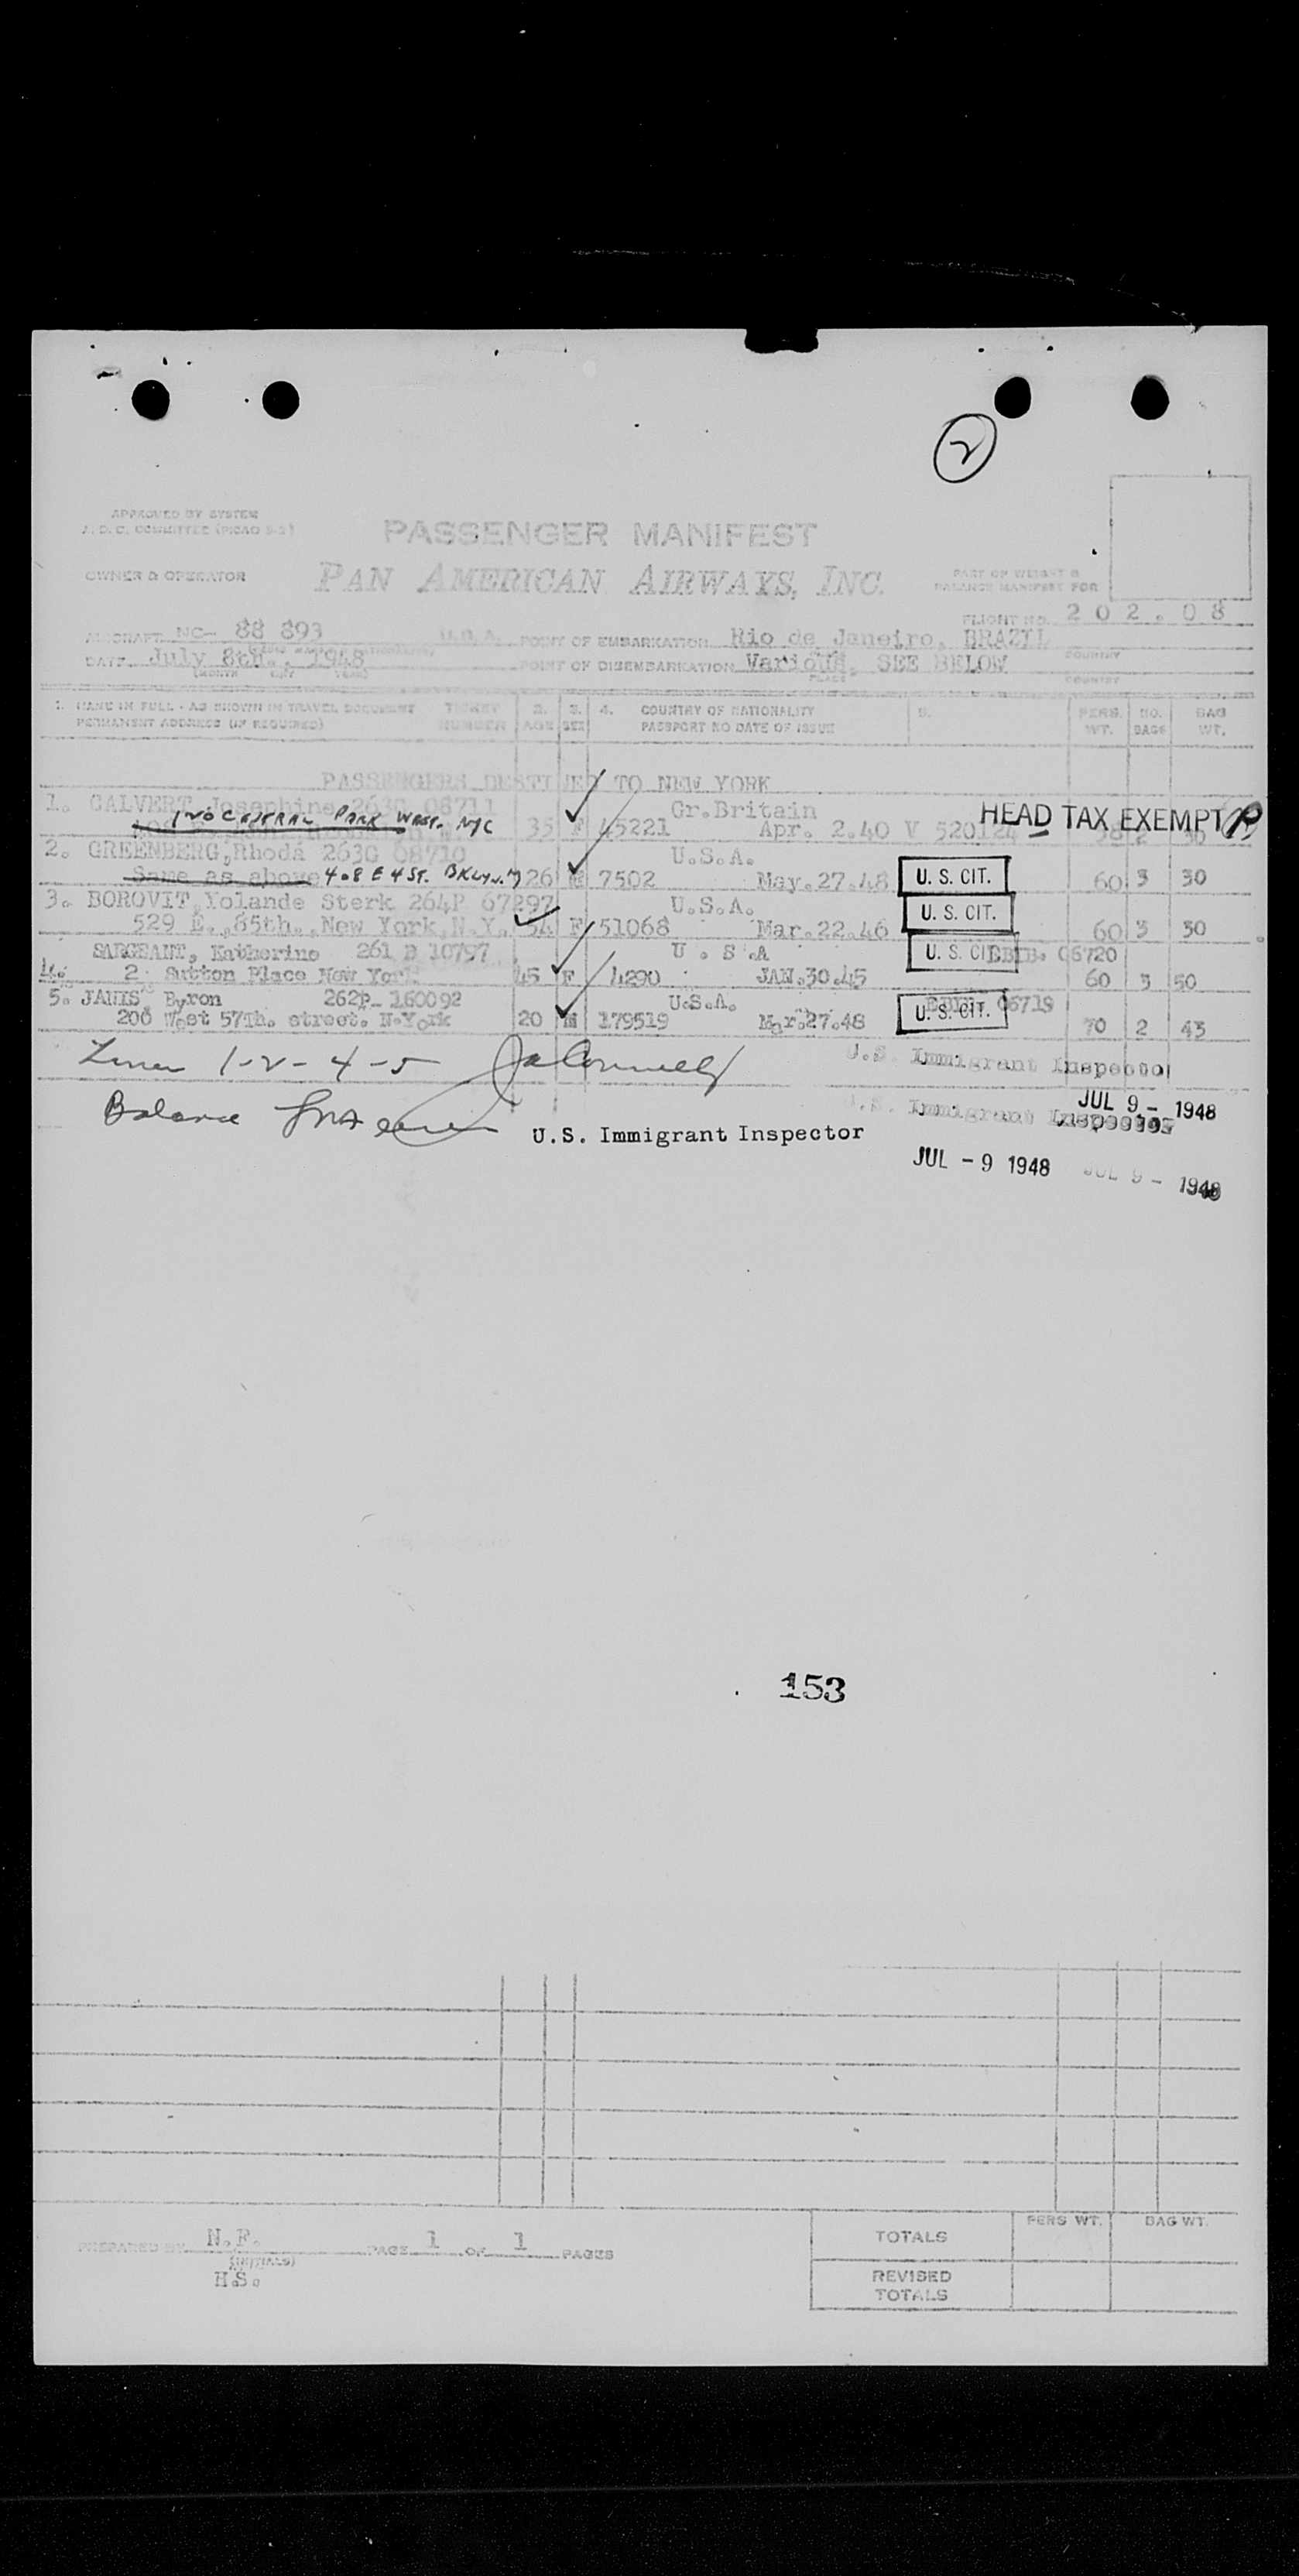 2
APPROVED BY SYSTEM
PASSENGER MANIFEST
OWNER & OPERATOR
PAN AMERICAN AIRWAYS, INC.
PART OF WEIGHT &
BALANCE MANIFEST FOR
FLIGHT NO. 202.08
AIRCRAFT NC- 88 893 U.S.A. POINT OF EMBARKATION Rio de Janeiro, BRAZIL
DATE July 8th., 1948 POINT OF DISEMBARKATION Various, SEE BELOW
PLACE COUNTRY
1. NAME IN FULL - AS SHOWN IN TRAVEL DOCUMENT TICKET 2. 3. 4. COUNTRY OF NATIONALITY 5. PERS. NO. BAG
PERMANENT ADDRESS (IF REQUIRED) NUMBER AGE SEX PASSPORT NO DATE OF ISSUE WT. BAGS WT.
PASSENGERS DESTINED TO NEW YORK
1. CALVERT, Josephine 263G 08711 Gr.Britain HEAD TAX EXEMPT
CENTRAL PARK WEST. NYC 35 F 45221 Apr. 2.40 V 520124
2. GREENBERG, Rhoda 263G 08710 U.S.A.
Same as above 408 E 4 ST. BKLYN. NY 26 7502 May.27.48 U. S. CIT. 60 3 30
3. BOROVIT, Yolande Sterk 264P 67297 U.S.A. U. S. CIT.
529 E., 85th., New York, N.Y. 54 F 51068 Mar.22.46 60 3 30
SARGEANT, Katherine 261 B 10797 U . S .A U. S. CIT. 06720
4. 2 Sutton Place New York 45 F 4290 JAN.30.45 60 3 50
5. JANIS, Byron 262P- 160092 U.S.A. U. S. CIT. 06719
200 West 57Th. street. N.York 20 M 179519 Mar.27.48 70 2 43
1-2-4-5
U.S. Immigrant Inspector
JUL 9 - 1948
Balance
U.S. Immigrant Inspector
U.S. Immigrant Inspector
JUL - 9 1948
JUL 9 - 1948
153
PREPARED BY N.F. PAGE 1 OF 1 PAGES
(INITIALS)
H.S.
PERS WT. BAG WT.
TOTALS
REVISED
TOTALS